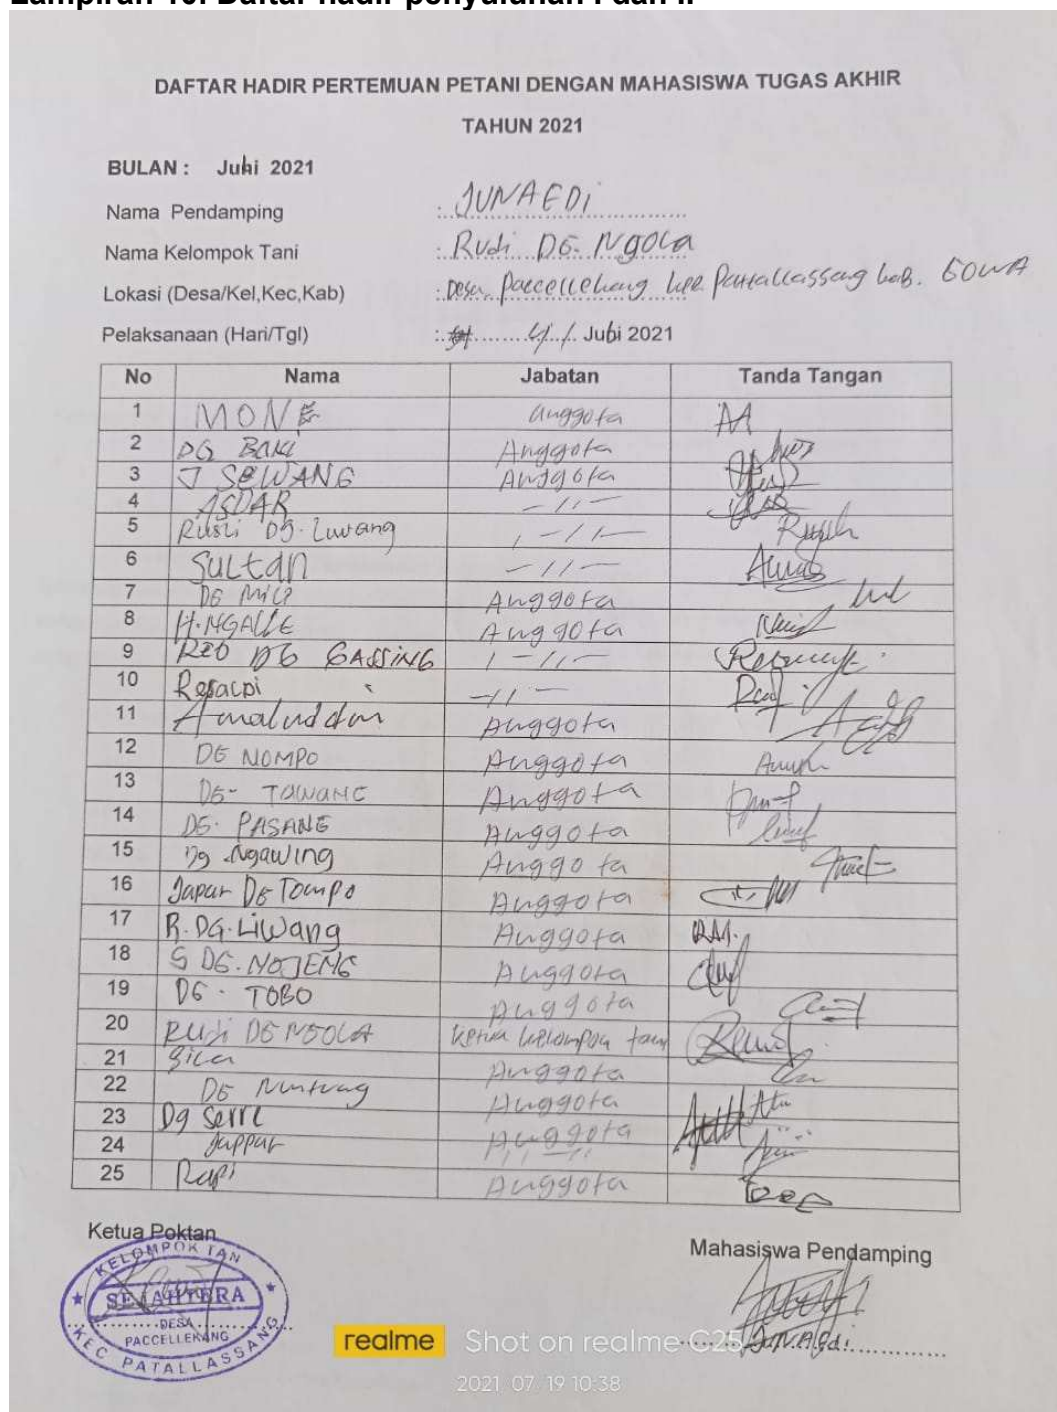 Lampiran 10. Daftar hadir penyuluhan I dan II
DAFTAR HADIR PERTEMUAN PETANI DENGAN MAHASISWA TUGAS AKHIR
TAHUN 2021
BULAN : Juli 2021
Nama Pendamping : JUNAEDI
Nama Kelompok Tani : Rudi DG. Ngola
Lokasi (Desa/Kel,Kec,Kab) : Desa Paccellekang kec Pattallassang kab. GOWA
Pelaksanaan (Hari/Tgl) : Juli 2021
No Nama Jabatan Tanda Tangan
1 MONE Anggota
2 DG BAKI Anggota
3 J SEWANG Anggota
4 ASDAR -//-
5 Rusli Dg. Luwang -//-
6 Sultan -//-
7 DG MILI Anggota
8 H. NGALLE Anggota
9 DG GASSING -//-
10 -//-
11 Amaluddin Anggota
12 DG NOMPO Anggota
13 DG- TAWANG Anggota
14 DG. PASANG Anggota
15 Dg Ngawing Anggota
16 Japar DG Tompo Anggota
17 R. DG. Liwang Anggota
18 S DG. NOJENG Anggota
19 DG. TOBO Anggota
20 RUDI DG NGOLA Ketua kelompok tani
21 Anggota
22 DG Nuntung Anggota
23 Dg Serre Anggota
24 Jappar Anggota
25 Rapi Anggota
Ketua Poktan
Mahasiswa Pendamping
KELOMPOK TANI
SEJAHTERA
DESA
PACCELLEKANG
KEC PATALLASSANG
JUNAEdi
realme Shot on realme C25
2021 07 19 10:38